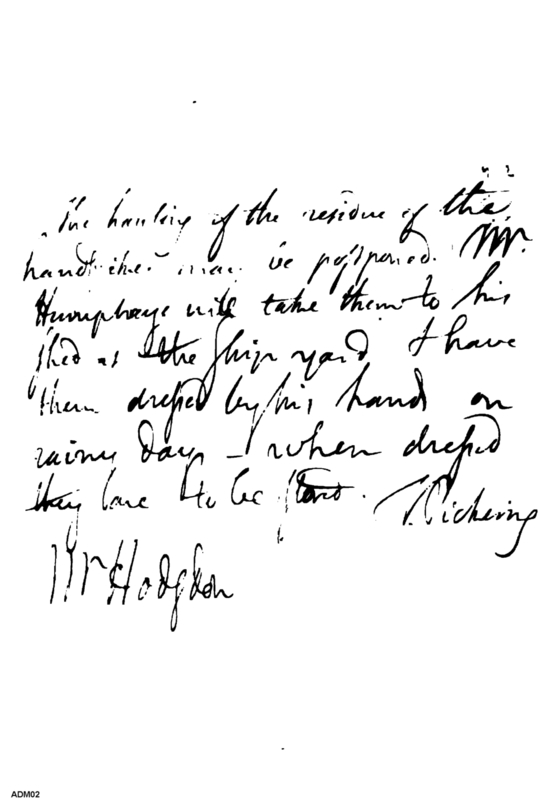 The hauling of the residue of the
handspikes may be postponed. Mr.
Humphreys will take them to his
shed at the ship yard & have
them dressed by his hands on
rainy days – when dressed
they are to be stored. T. Pickering
Mr Hodgdon
ADM02